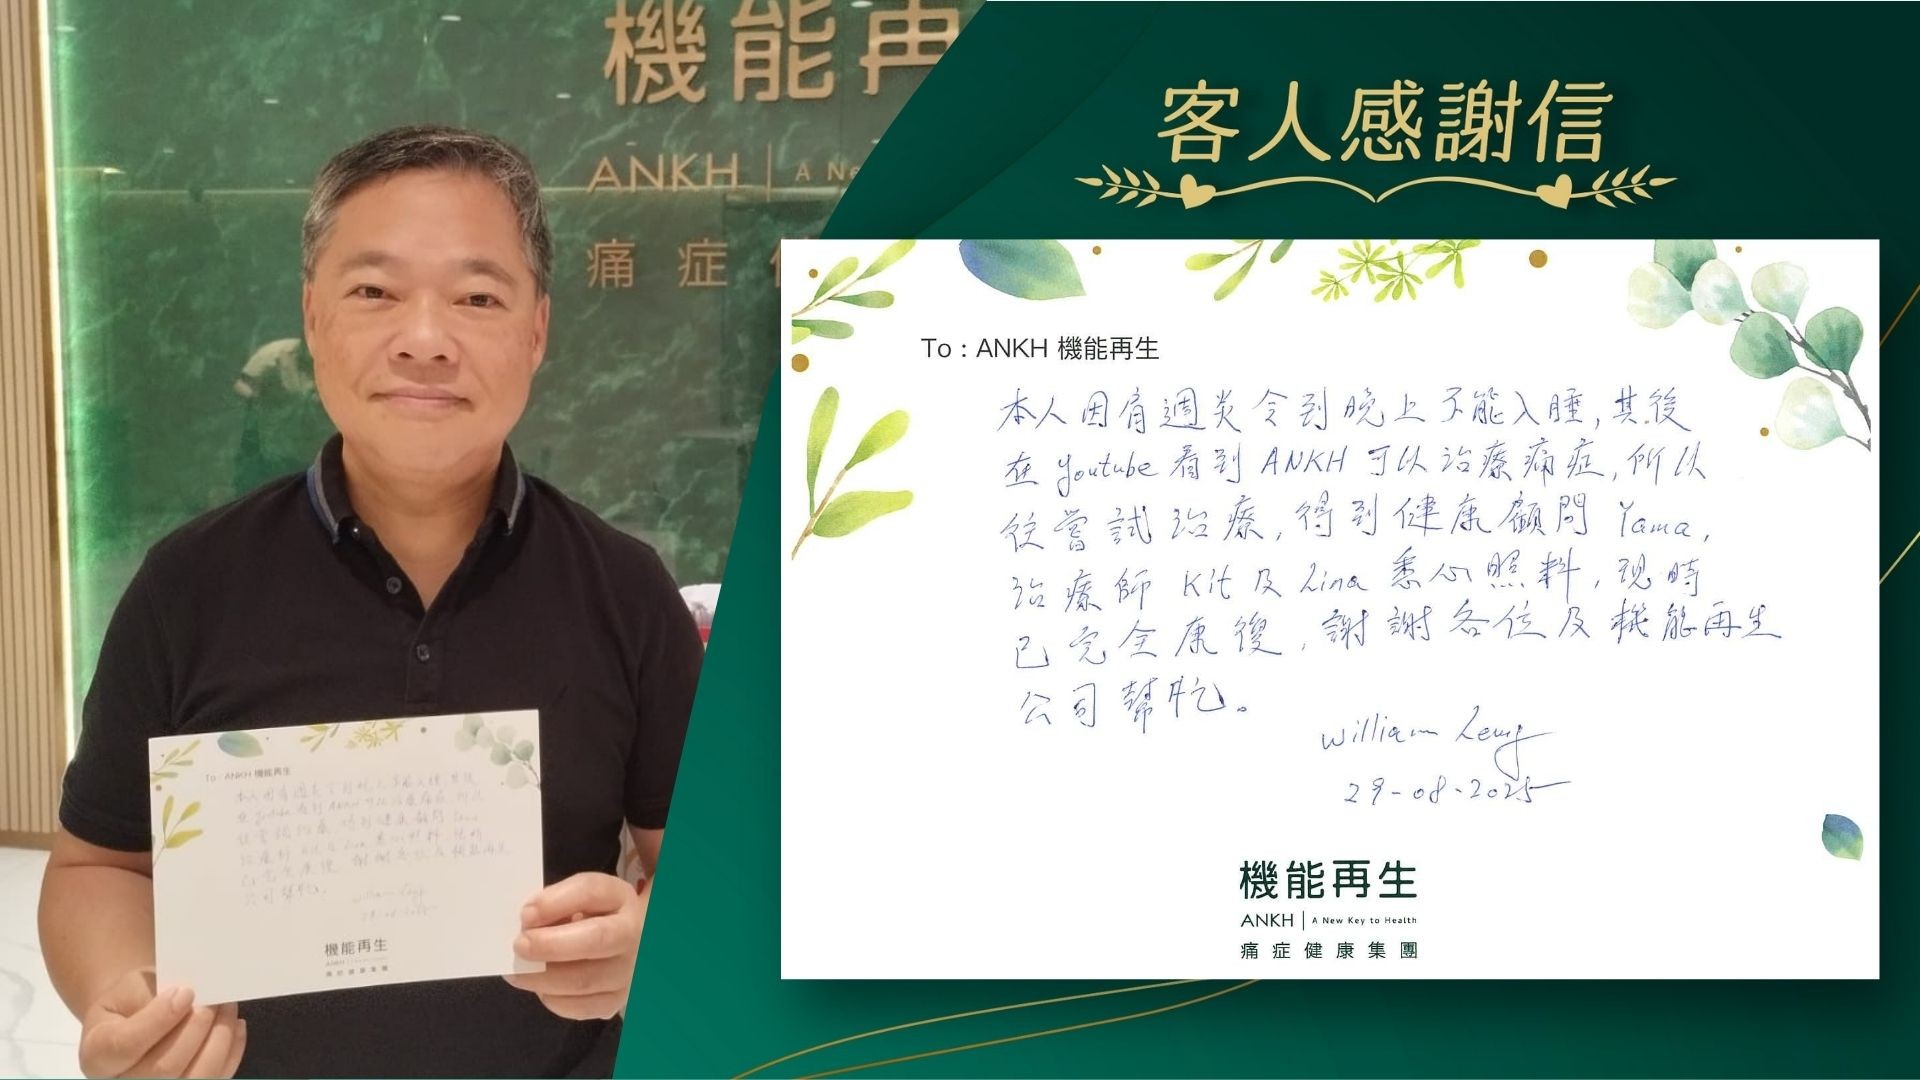 機能再
ANKH | A Ne
痛症
客人感謝信
To : ANKH 機能再生
本人因肩週炎令到晚上不能入睡，其後
在 Youtube 看到 ANKH 可以治療痛症，所以
往嘗試治療，得到健康顧問 Yama，
治療師 Kit 及 Lina 悉心照料，現時
已完全康復，謝謝各位及機能再生
公司幫忙。
William Leung
29-08-2025
機能再生
ANKH | A New Key to Health
痛症健康集團
To : ANKH 機能再生
本人因肩週炎令到晚上不能入睡，其後
在 Youtube 看到 ANKH 可以治療痛症，所以
往嘗試治療，得到健康顧問 Yama
治療師 Kit 及 Lina 悉心照料，現時
已完全康復，謝謝各位及機能再生
公司幫忙。
William Leung
29-08-2025
機能再生
痛症健康集團